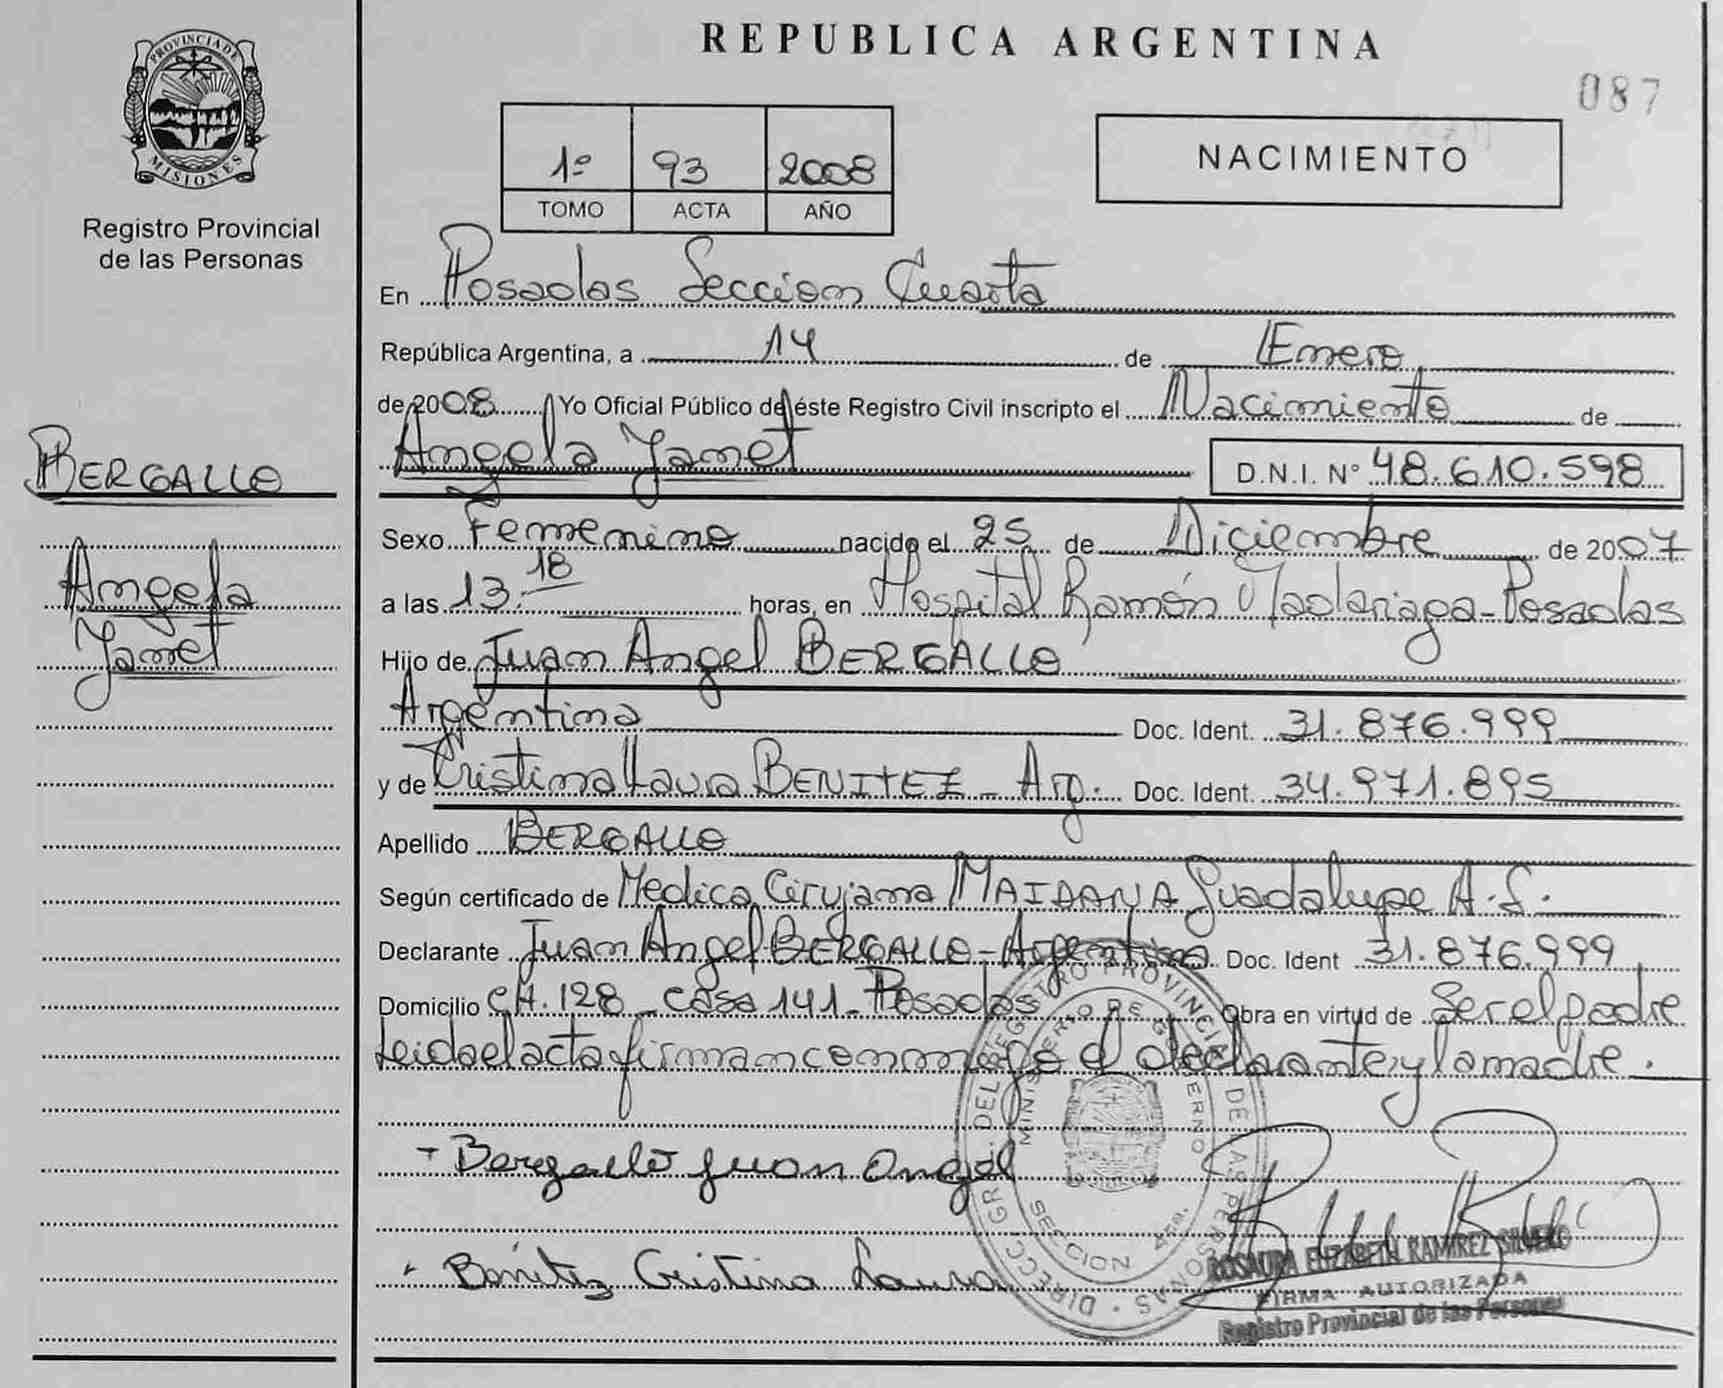 REPUBLICA ARGENTINA
087
PROVINCIA DE
MISIONES
Registro Provincial
de las Personas
1º 93 2008
TOMO ACTA AÑO
NACIMIENTO
En Posadas Seccion Cuarta
República Argentina, a 14 de Enero
de 2008 Yo Oficial Público de éste Registro Civil inscripto el Nacimiento de
Angela Yanet D.N.I. Nº 48.610.598
BERGALLO
Angela
Yanet
Sexo Femenino nacido el 25 de Diciembre de 2007
a las 13.18 horas, en Hospital Ramón Madariaga - Posadas
Hijo de Juan Angel BERGALLO
Argentina Doc. Ident. 31.876.999
y de Cristina Laura BENITEZ - Arg. Doc. Ident. 34.971.895
Apellido BERGALLO
Según certificado de Medica Cirujana MAIDANA Guadalupe A. S.
Declarante Juan Angel BERGALLO - Argentino Doc. Ident 31.876.999
Domicilio CH. 128 - casa 141 - Posadas Obra en virtud de Ser el padre
Leida el acta firman conmigo el declarante y la madre.
- Bergallo juan Angel
- Benitez Cristina Laura
DIRECC. GR. DEL REGISTRO PROVINCIAL DE LAS PERSONAS
MINISTERIO DE GOBIERNO
SECCION 4ta.
ROSAURA ELIZABETH RAMIREZ SILVERO
FIRMA AUTORIZADA
Registro Provincial de las Personas